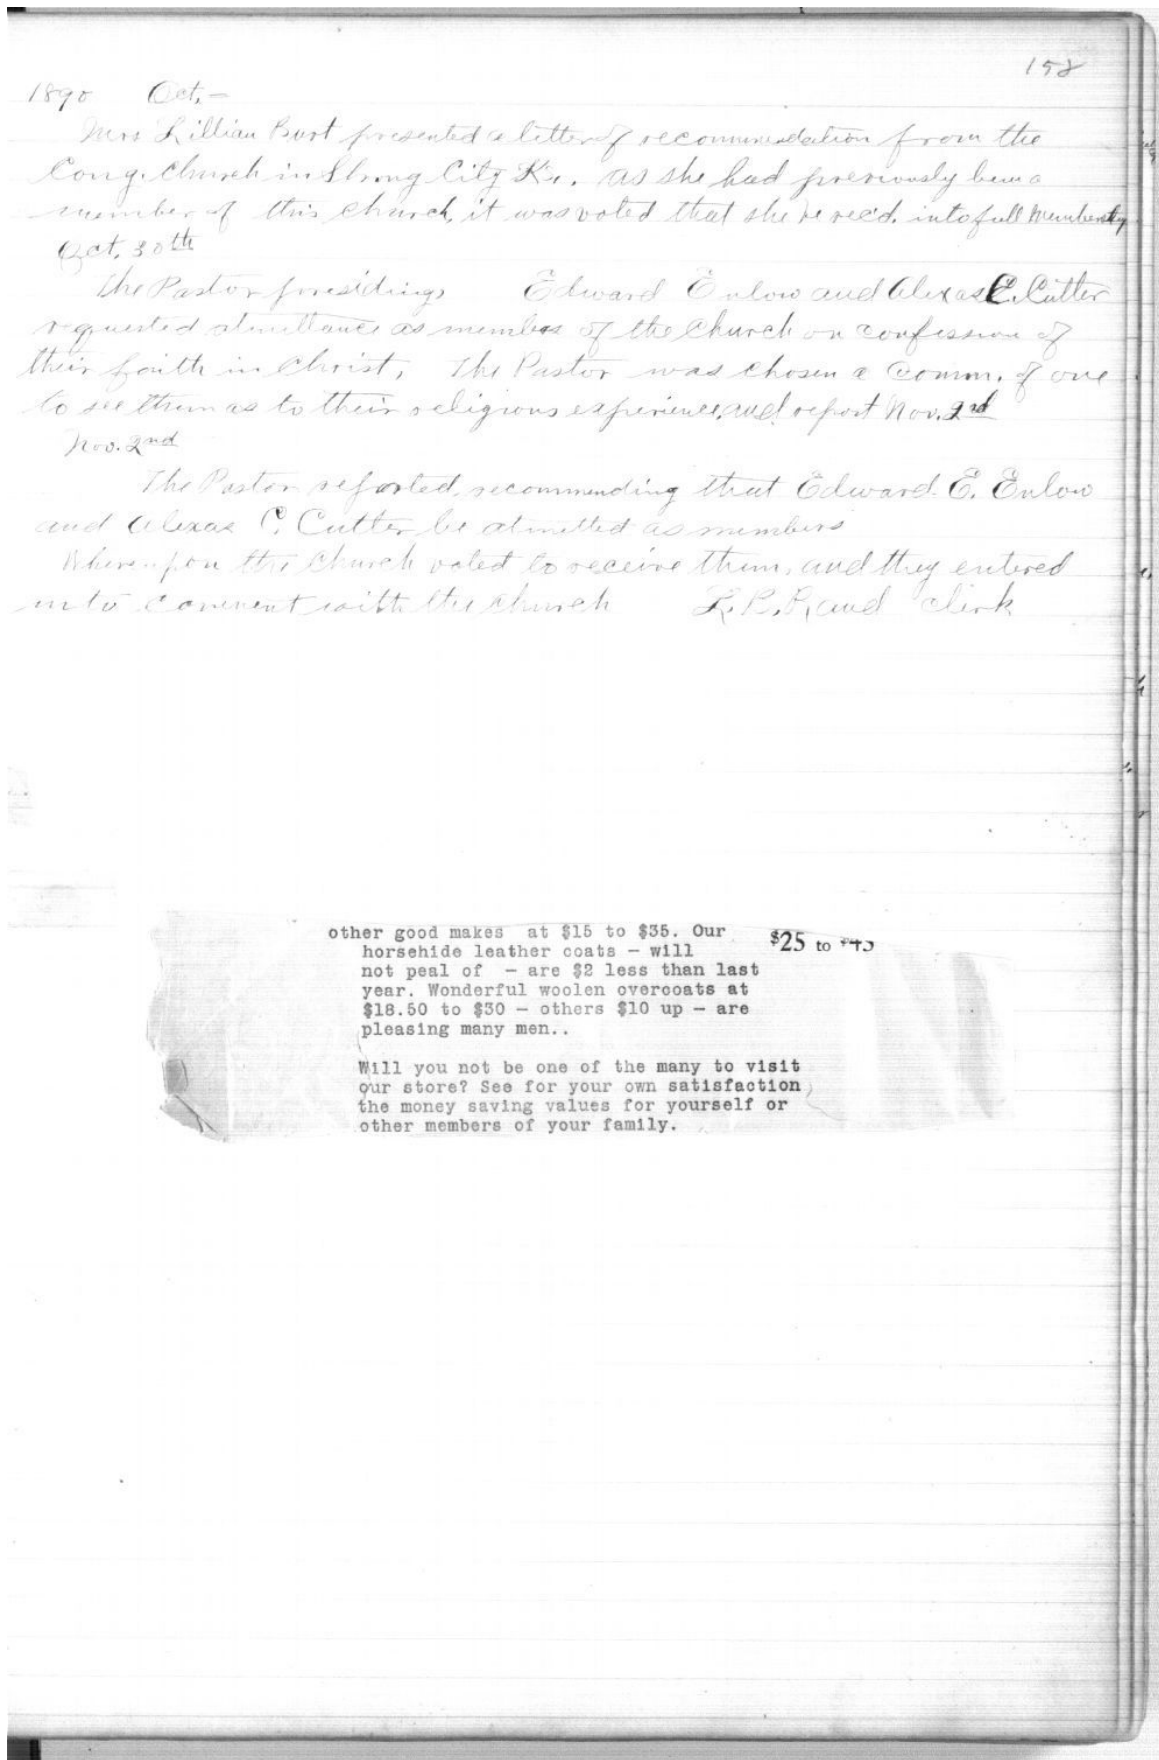 158
1890 Oct. —
Mrs Lillian Burt presented a letter of recommendation from the
Cong. Church in Strong City Ks. as she had previously been a
member of this church, it was voted that she be rec'd. into full Membership
Oct. 30th
The Pastor presiding, Edward Enlow and Alexas C. Cutter
requested admittance as members of the Church on confession of
their faith in Christ, The Pastor was chosen a Comm. of one
to see them as to their religious experience, and report Nov. 2nd
Nov. 2nd
The Pastor reported, recommending that Edward E. Enlow
and Alexas C. Cutter be admitted as members
Whereupon the Church voted to receive them, and they entered
into covenent with the church L. R. Rand Clerk
other good makes at $15 to $35. Our
horsehide leather coats - will
not peal of - are $2 less than last
year. Wonderful woolen overcoats at
$18.50 to $30 - others $10 up - are
pleasing many men..
$25 to $45
Will you not be one of the many to visit
our store? See for your own satisfaction
the money saving values for yourself or
other members of your family.